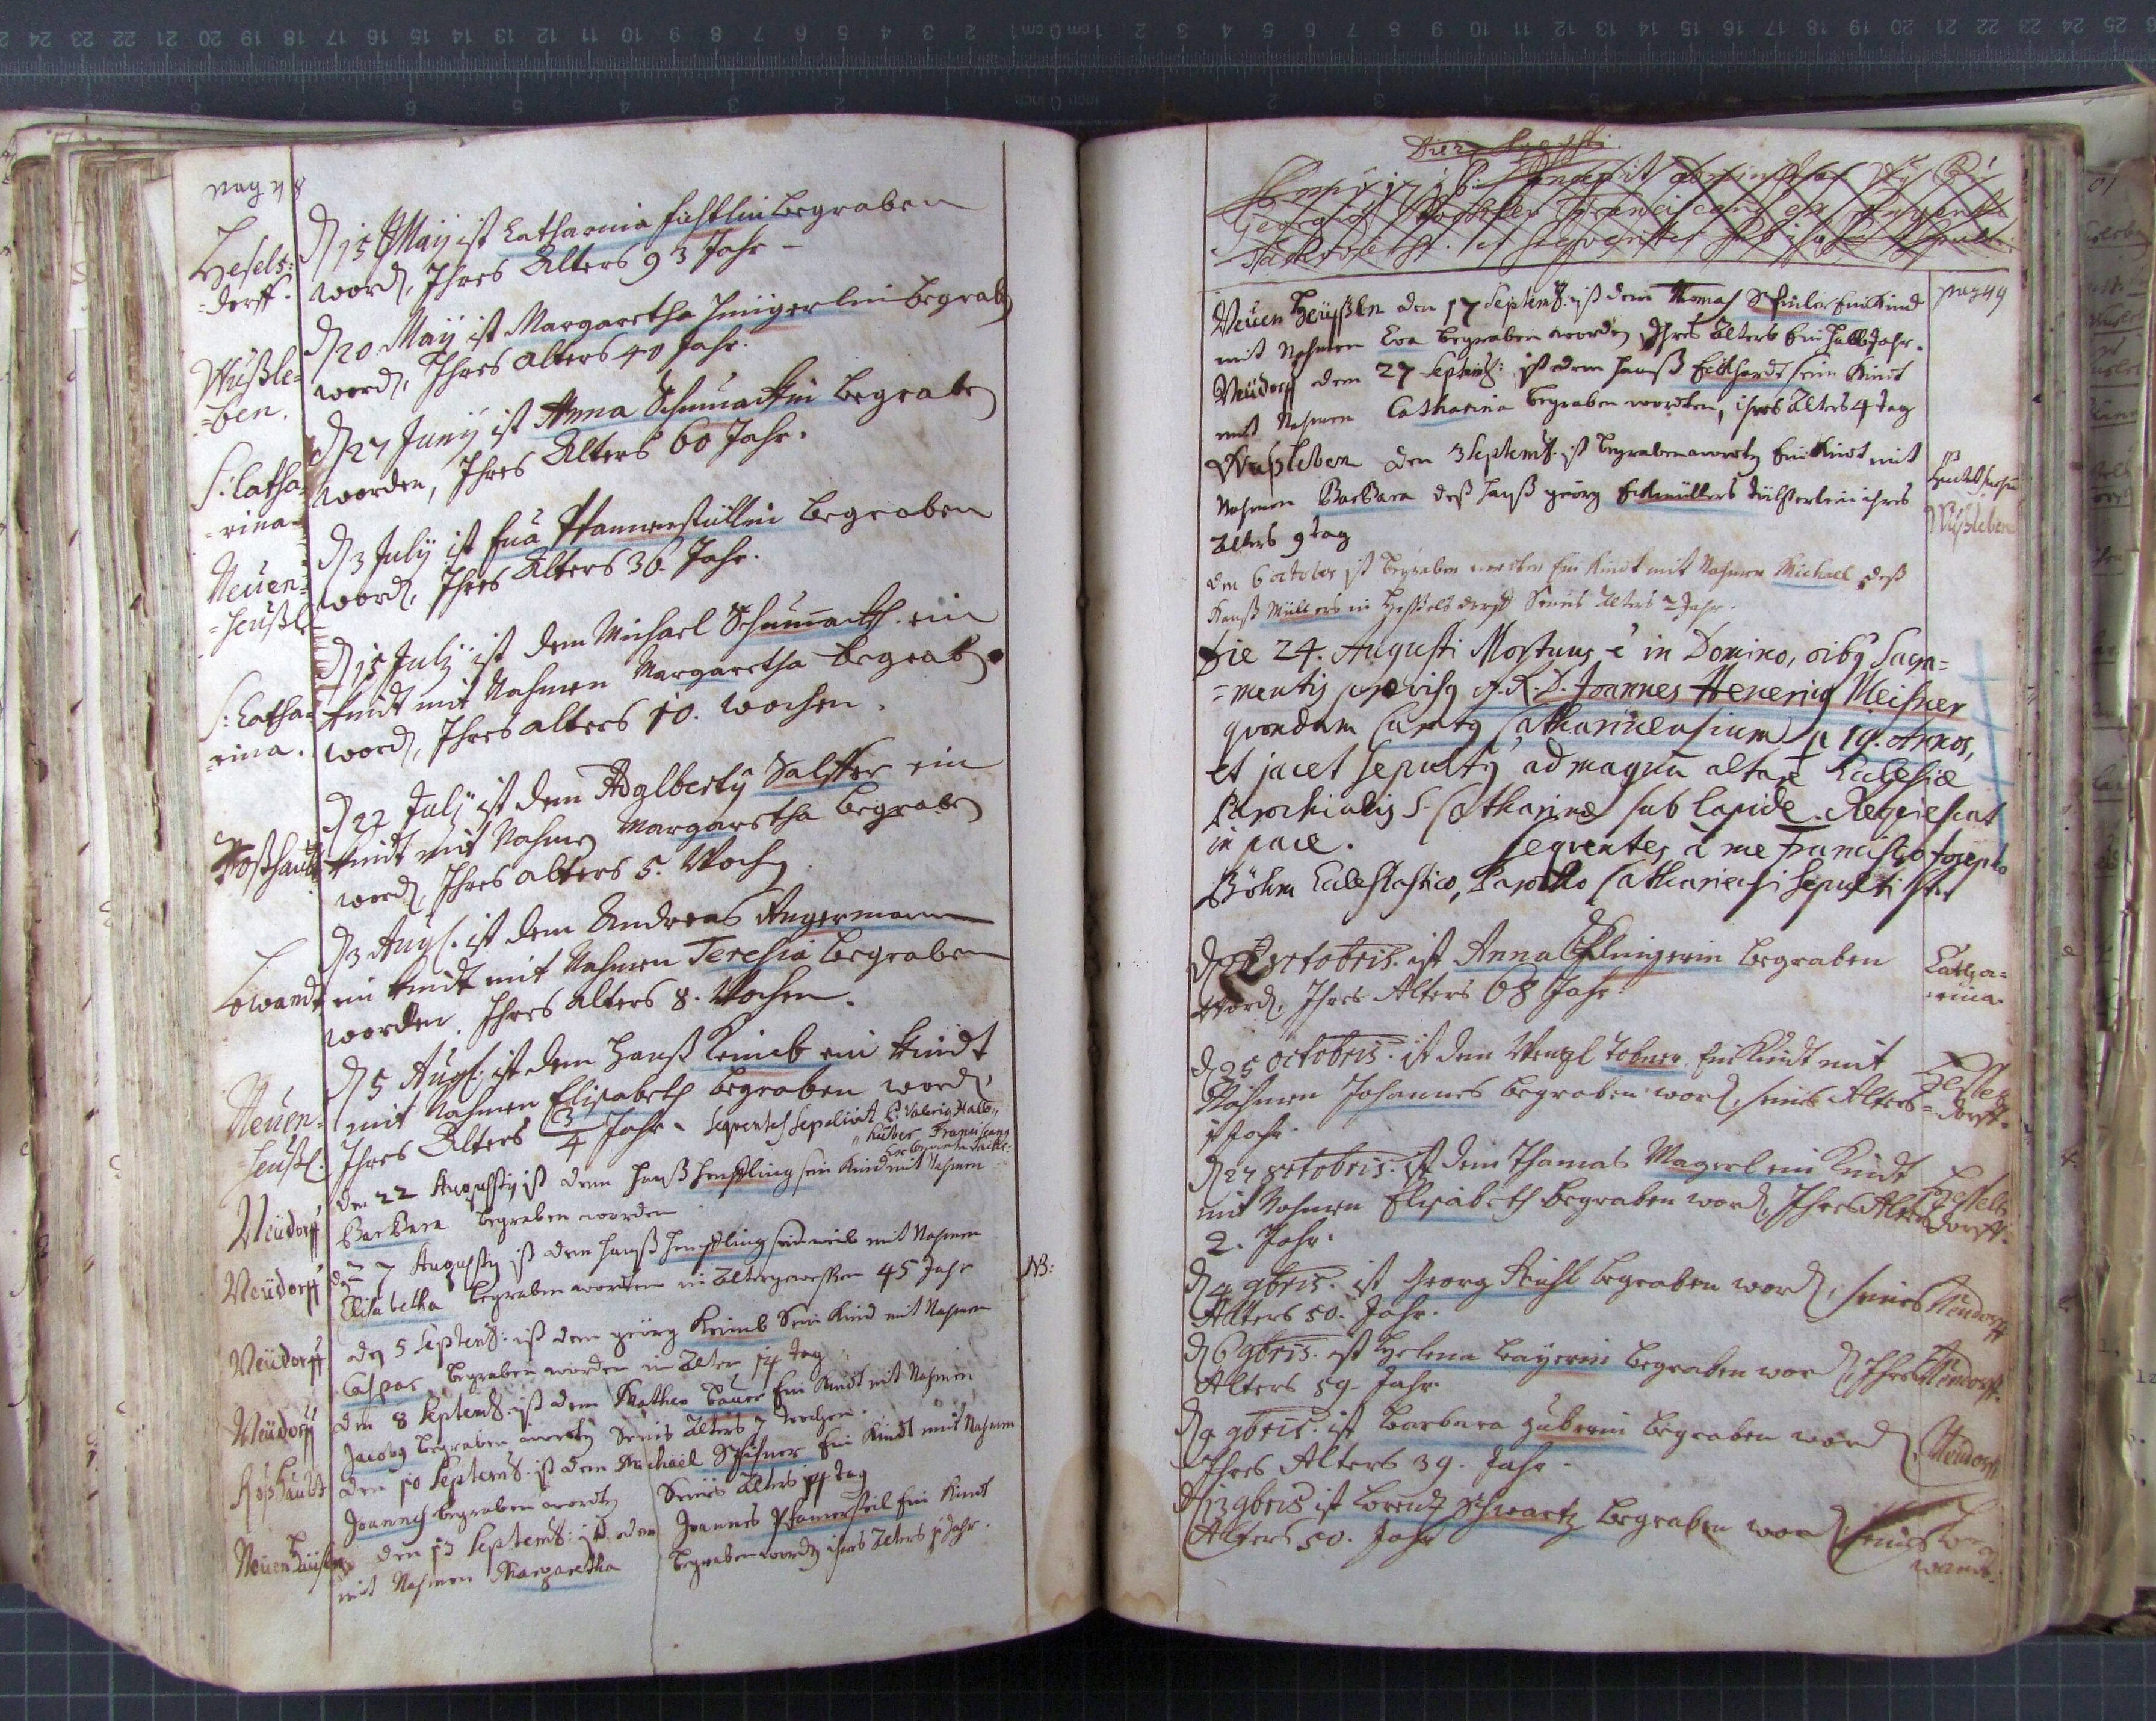 pag 48
Hesels:
=derff.
D 15 Maij ist Catharina fichtlin begraben
word, Ihres Alters 93 Jahr –
Wußle=
=ben.
D 20 May ist Margaretha Hüngerlin begrab
word, Ihres alters 40 Jahr.
S: Catha=
=rina
D 27 Junÿ ist Anna Schumackin begrab
worden, Ihres Alters 60 Jahr.
Neuen=
=heußl
D 3 Julij ist Eua Pfannenstüllin begraben
word, Ihres Alters 36. Jahr.
S: Catha=
=rina.
D 15 Julÿ ist dem Michael Schumach ein
Kindt mit Nahmen Margaretha begrab
word, Ihres alters 10. wochen.
Roßhaubt
D 22 Julÿ ist dem Adalbertÿ Salffer ein
Kindt mit Nahmen Margaretha begrab
word, Ihres alters 5. Woch
Lowandt
D 3 Augs. ist dem Andreas Angermann
ein Kindt mit Nahmen Teresia begraben
worden. Ihres alters 8. Wochen.
Neuen=
=heußl.
D 5 Augs. ist dem Hanß Keimb ein Kindt
mit Nahmen Elisabeth begraben word,
Ihres Alters 3/4 Jahr. Sequentes sepelivit P. Valeriy
Huber Franciscang
Neüdorff
den 22 Augusty ist dem Hanß Henffling sein Kind mit Nahmen
Barbara begraben worden
Neüdorff
27 Augusty ist dem Hanß Henffling sein weib mit Nahmen
Elisabetha begraben worden in Alter gewessen 45 Jahr
NB:
Neüdorff
den 5 Septemb: ist dem georg Keimb Sein Kind mit Nahmen
Caspar begraben worden in Alter 14 tag
Neüdorff
den 8 Septemb. ist dem Matheo Bauer Ein Kindt mit Nahmen
Jacobg begraben worden Seines Alters 7 wochen.
Roßhaubt
den 10 Septemb. ist dem Michäel Schisner Ein Kindt mit Nahmen
Joannes begraben worden Seines Alters 14 tag
Neuen Häußln
den 13 Septemb: ist dem Joannes Pfanerstil Ein Kindt
mit Nahmen Margaretha begraben worden ihres Alters 1 Jahr.
pag 49
Neuen Heußlen den 17 Septemb. ist dem Thomas Schuler Ein Kind
mit Nahmen Eva begraben worden Ihres Alters Ein halb Jahr.
Neüdorff den 27 Septemb: ist dem Hanß Eckhardt sein Kindt
mit Nahmen Catharina begraben worden, ihres Alters 4 tag
Wusleben den 3 Septemb. ist begraben worden Ein Kindt mit
Nahmen Barbara deß Hanß georg Eckmüllers töchterlein ihres
Alters 9 tag
Wußleben
den 6 october ist begraben worden Ein Kindt mit Nahmen Michael deß
Hanß Müllers in Hesselsdorff Seines Alters 2 Jahr.
Die 24. Augusti Mortuus ē in Domino, oibg Sacra=
=mentis provisg A.R.D. Joannes Henericg Meisner
quondam Curatg Catharinensium p 19. Annos,
et jacet sepultg ad magnū altare Ecclesiæ
Parochialis S. Catharinæ sub lapide. Requiescat
in pace. Sequentes à me Francisco Josepho
Böhm Eclesiastico, Parocho Catharinensi sepulti sut
Catha=
=rina.
octobris. ist Anna Klingerin begraben
Word, Ihres Alters 68 Jahr.
Hessels
=dorff.
D 25 octobris. ist dem Wenzl Tobner Ein Kindt mit
Nahmen Johannes begraben word, seines Alters
1 Jahr.
Hessels
dorff.
D 27 octobris. ist dem Thamas Magerl ein Kindt
mit Nahmen Elisabeth begraben word, Ihres Alters
2. Jahr.
Neudorff
D 4 9bris. ist Georg Riehl begraben word, seines
Alters 50. Jahr.
Neudorff.
D 6 9bris. ist Helena Bayerin begraben word, Ihres
Alters 59. Jahr.
Neudorff
D 9 9bris. ist Barbara Huberin begraben word
Ihres Alters 39. Jahr.
D 13 9bris ist Lorentz Schwartz begraben word, seines
Alters 50. Jahr
Lo
wandt.